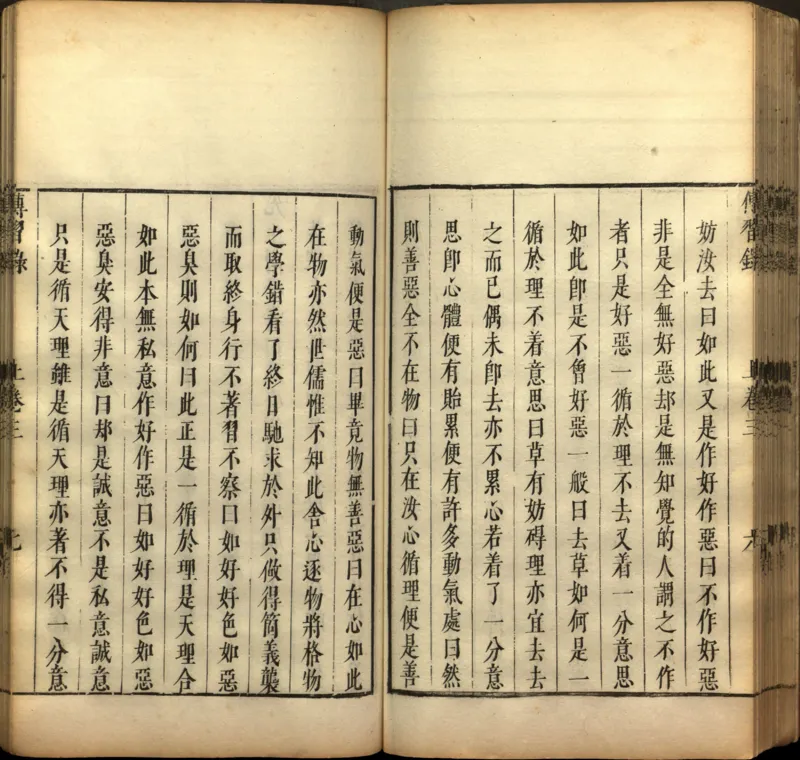 妨汝去曰如此又是作好作惡曰不作好惡
非是全無好惡却是無知覺的人謂之不作
者只是好惡一循於理不去又着一分意思
如此卽是不曾好惡一般曰去草如何是一
循於理不着意思曰草有妨碍理亦宜去去
之而已偶未卽去亦不累心若着了一分意
思卽心體便有貽累便有許多動氣處曰然
則善惡全不在物曰只在汝心循理便是善
動氣便是惡曰畢竟物無善惡曰在心如此
在物亦然世儒惟不知此舍心逐物將格物
之學錯看了終日馳求於外只做得箇義襲
而取終身行不著習不察曰如好好色如惡
惡臭則如何曰此正是一循於理是天理合
如此本無私意作好作惡曰如好好色如惡
惡臭安得非意曰却是誠意不是私意誠意
只是循天理雖是循天理亦著不得一分意
傳習錄
上卷三